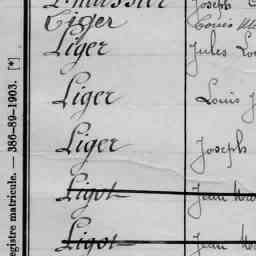 Liger
Liger Jules
Liger Louis
Liger Joseph
Ligot Jean
Ligot Jean
egistre matricule. — 386-89-1903. [*]